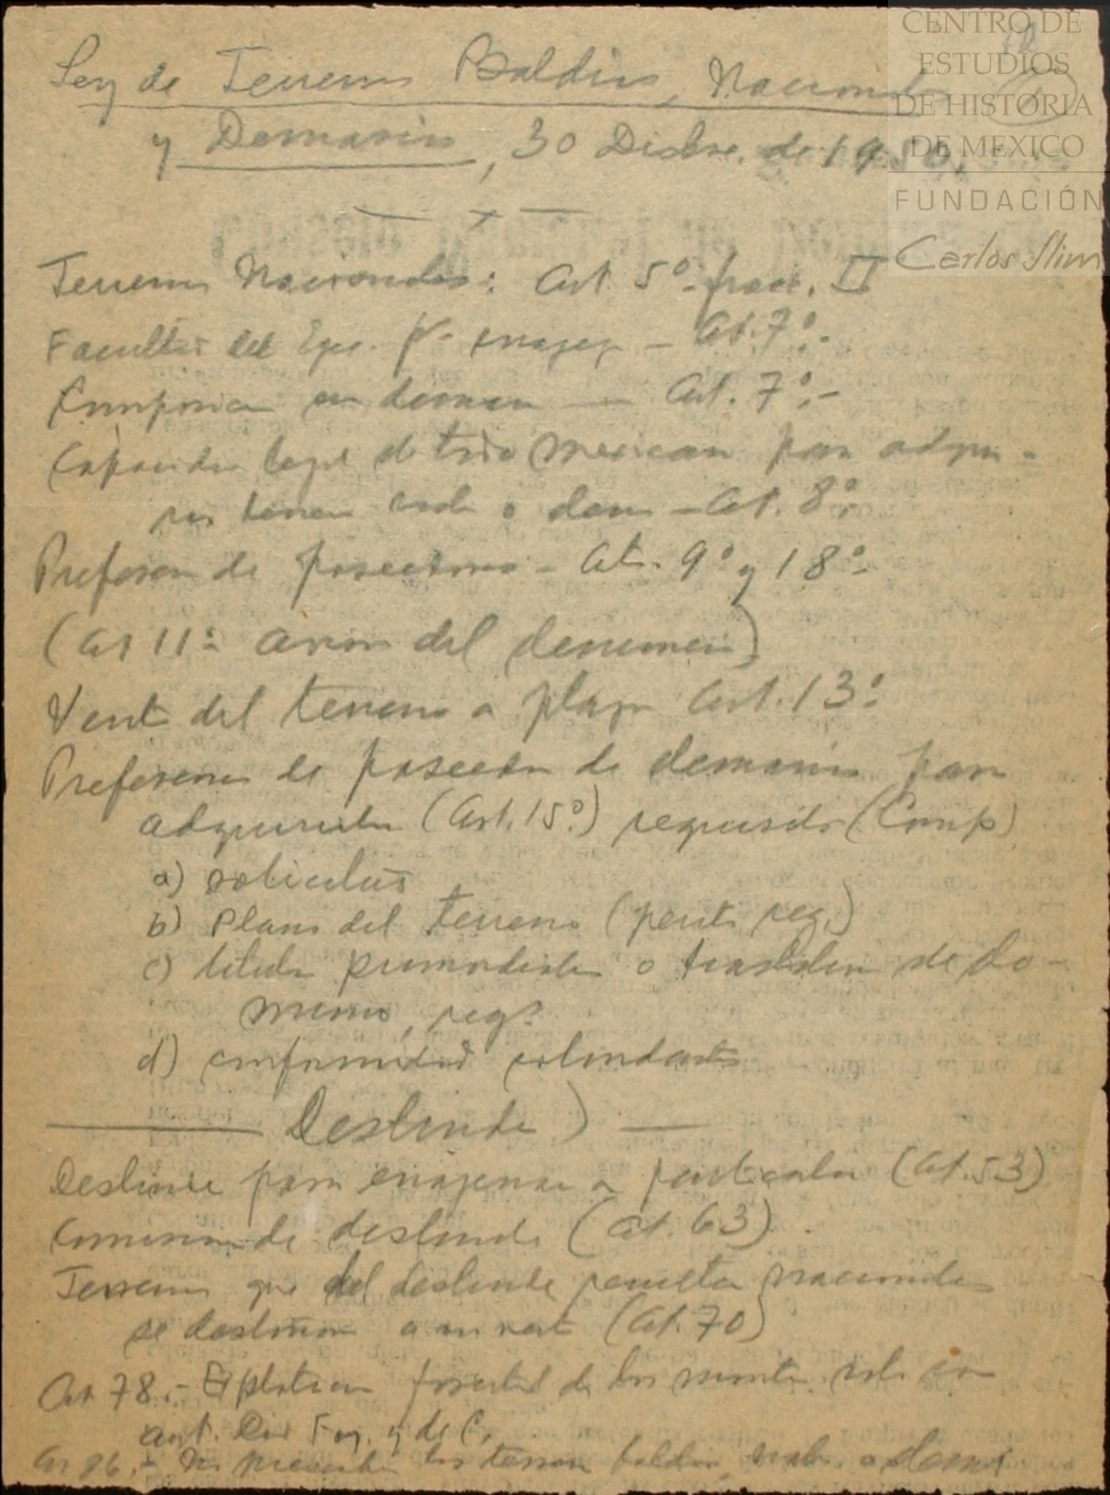 CENTRO DE
ESTUDIOS
DE HISTORIA
DE MEXICO
FUNDACIÓN
Carlos Slim
Ley de Terrenos Baldios, Nacionales
y Demasias, 30 Dicbre. de 1950.
Terrenos Nacionales: Art. 5º frac. II
Facultad del Ejec. pª enajen – Art. 7º.-
Composicion en demas — Art. 7º.-
Capacidad legal de todo mexicano para adqui-
rir terren nals o dem – Art. 8º.
Preferen de poseedores – Art. 9º y 18º.-
(Art 11º del denuncio)
Venta del terreno a plazo Art. 13º
Preferencia de poseedor de demasias para
adquirirlas (Art. 15º.) requisitos (Comp)
a) solicitud
b) Plano del terreno (perito reg.)
c) titulo primordial o traslation de do-
minio, regº.
d) conformidad colindantes
Deslinde)
Deslinde para enajenar a particular (Art. 53)
Comision de deslinde (Art. 63)
Terrenos que del deslinde resulten nacionales
se destinan a su venta (Art. 70)
Art 78.- Explotacion forestal de los montes solo con
aut. Dir For. y de C.
Art 86.- No prescriben los terrenos baldios, nals. o demas